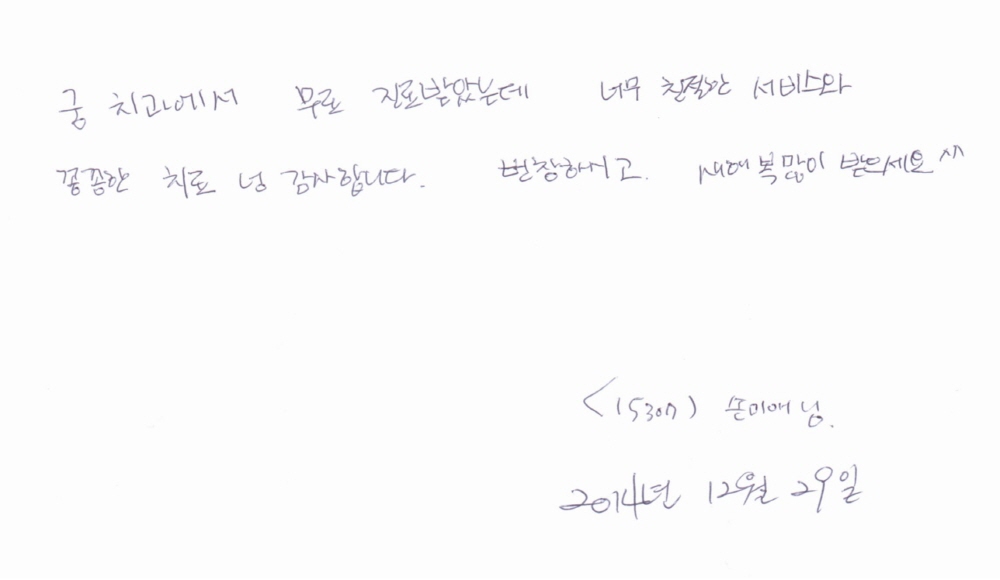 궁 치과에서 무료 진료받았는데 너무 친절한 서비스와
꼼꼼한 치료 넘 감사합니다. 번창하시고. 새해 복많이 받으세요 ^^
<15307) 손미애님.
2014년 12월 29일